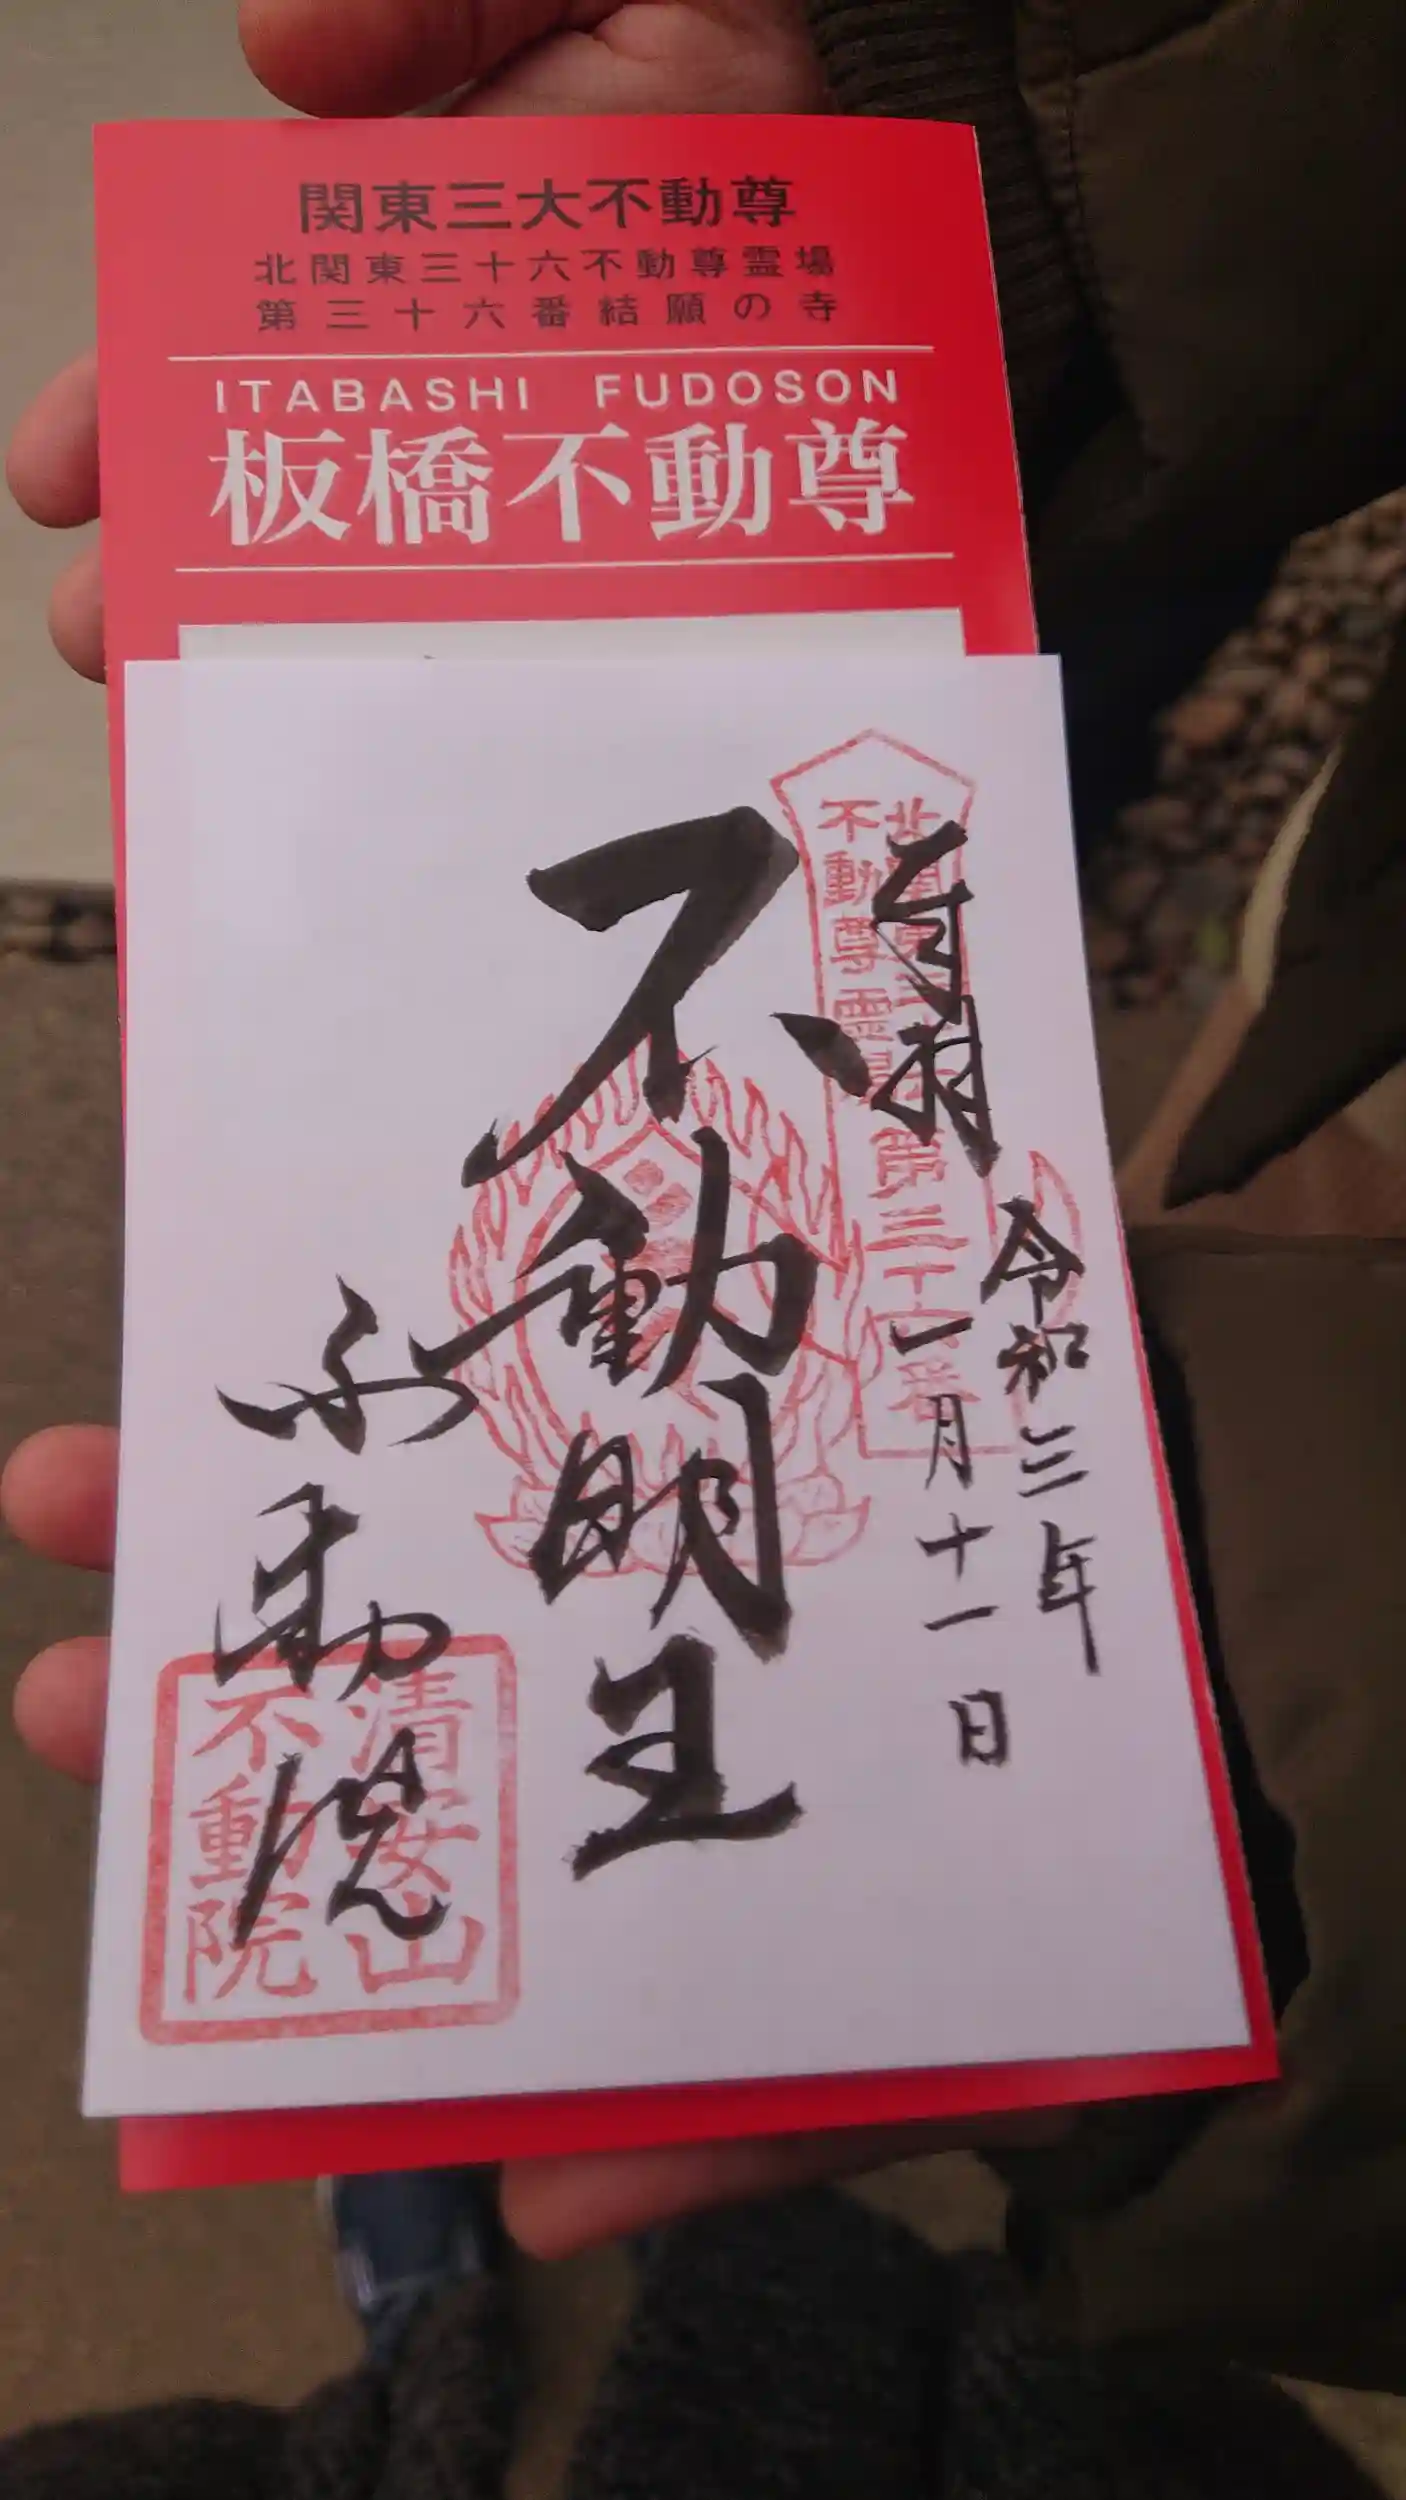 関東三大不動尊
北関東三十六不動尊霊場
第三十六番結願の寺
ITABASHI FUDOSON
板橋不動尊
奉拝
令和三年
一月十一日
北関東三十六
不動尊霊場第三十六番
不動明王
不動院
清安山
不動院